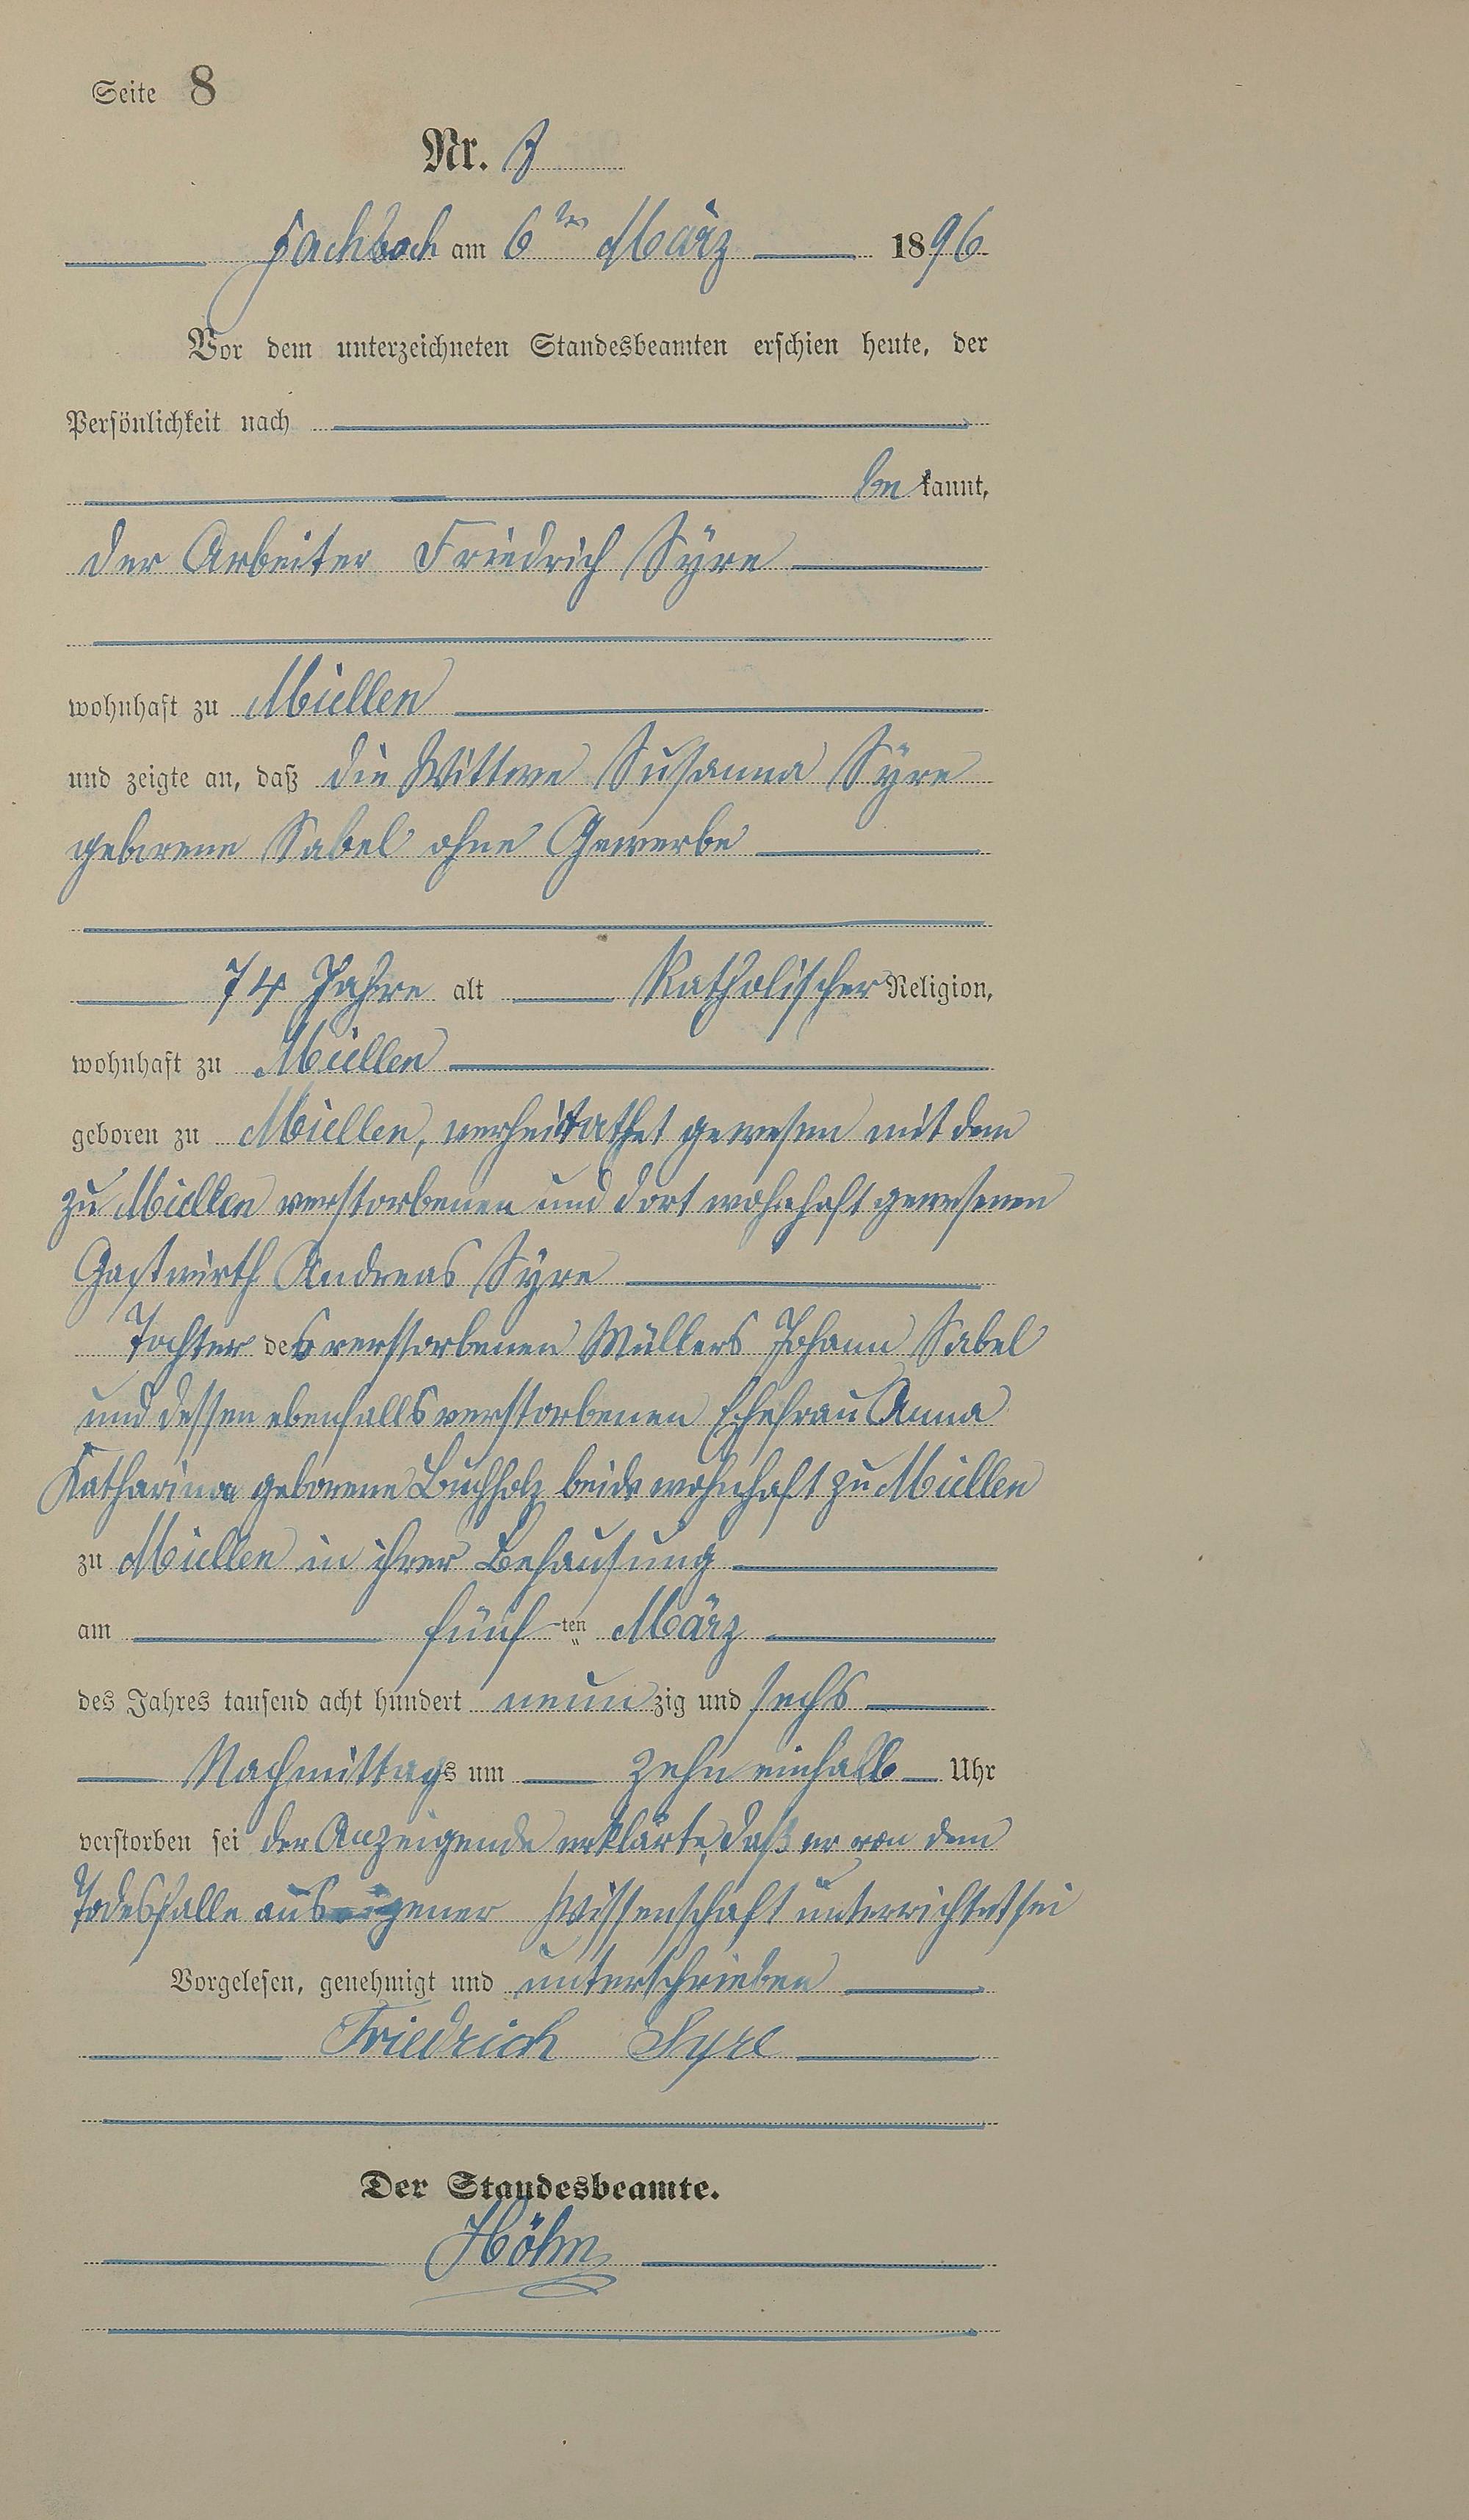 Seite 8
Nr. 8
Fachbach am 6ten März 1896
Vor dem unterzeichneten Standesbeamten erschien heute, der
Persönlichkeit nach
be kannt,
der Arbeiter Friedrich Syre
wohnhaft zu Miellen
und zeigte an, daß die Wittwe Susanna Syre
geborene Sabel ohne Gewerbe
74 Jahre alt Katholischer Religion,
wohnhaft zu Miellen
geboren zu Miellen, verheirathet gewesen mit dem
zu Miellen verstorbenen und dort wohnhaft gewesenen
Gastwirth Andreas Syre
Tochter des verstorbenen Müllers Johann Sabel
und dessen ebenfalls verstorbenen Ehefrau Anna
Katharina geborene Buchholz beide wohnhaft zu Miellen
zu Miellen in ihrer Behausung
am fünf ten März
des Jahres tausend acht hundert neun zig und sechs
Nachmittags um zehn einhalb Uhr
verstorben sei der Anzeigende erklärte, daß er von dem
Todesfalle aus eigener Wissenschaft unterrichtet sei
Vorgelesen, genehmigt und unterschrieben
Friedrich Syre
Der Standesbeamte.
Höhn